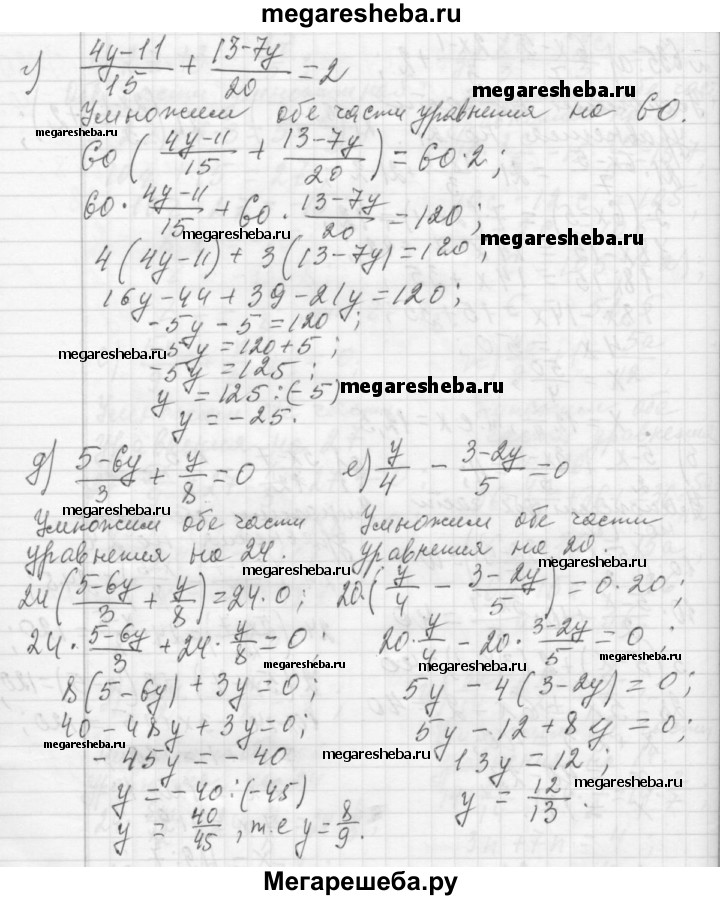 megaresheba.ru
г) (4y-11)/15 + (13-7y)/20 = 2
megaresheba.ru
Умножим обе части уравнения на 60.
megaresheba.ru
60 ( (4y-11)/15 + (13-7y)/20 ) = 60·2;
60 · (4y-11)/15 + 60 · (13-7y)/20 = 120;
megaresheba.ru
megaresheba.ru
4(4y-11) + 3(13-7y) = 120;
16y-44+39-21y=120;
-5y-5=120;
megaresheba.ru
-5y=120+5;
-5y=125;
megaresheba.ru
y = 125:(-5)
y = -25.
д) (5-6y)/3 + y/8 = 0
megaresheba.ru
Умножим обе части
уравнения на 24.
megaresheba.ru
24( (5-6y)/3 + y/8 ) = 24·0;
24 · (5-6y)/3 + 24 · y/8 = 0;
megaresheba.ru
8(5-6y) + 3y=0;
40-48y+3y=0;
megaresheba.ru
-45y = -40
y = -40:(-45)
y = 40/45, т.е y = 8/9.
е) y/4 - (3-2y)/5 = 0
megaresheba.ru
Умножим обе части
уравнения на 20.
megaresheba.ru
20( y/4 - (3-2y)/5 ) = 0·20;
20· y/4 - 20· (3-2y)/5 = 0;
megaresheba.ru
5y - 4(3-2y) = 0;
5y-12+8y = 0;
megaresheba.ru
13y=12;
megaresheba.ru
y = 12/13.
Мегарешеба.ру